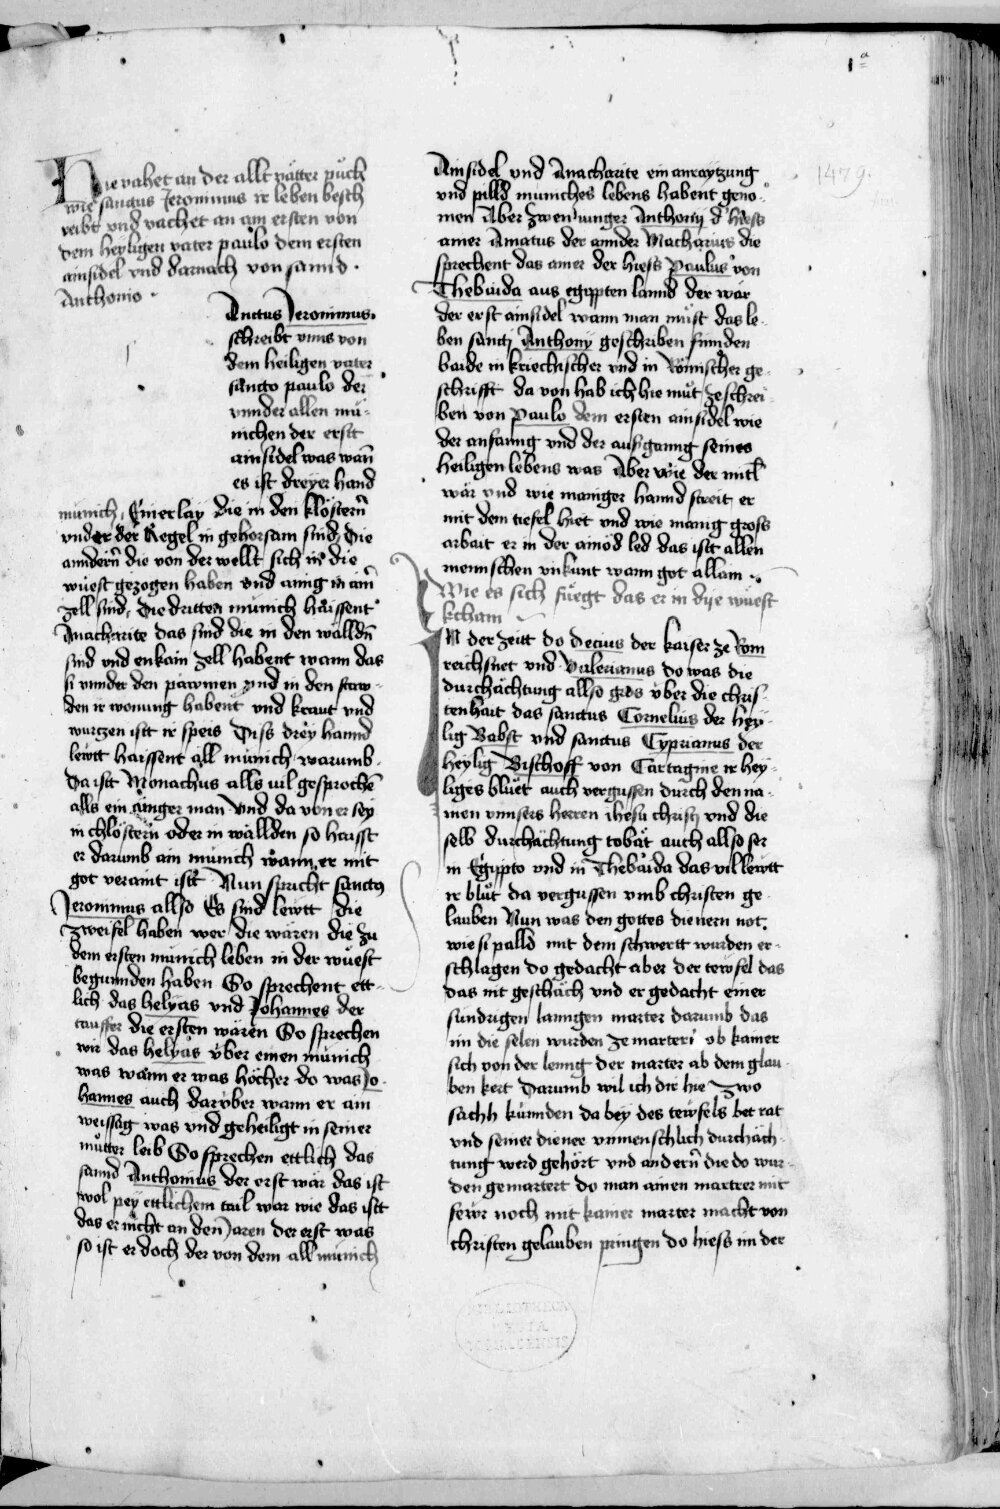 1a
Hie vahet an der allt vätter püch
wie sanctus Jeronimus ir leben besch
reibt vnd vachet an am ersten von
dem heyligen vater paulo dem ersten
ainsidel vnd darnach von sannd
Anthonio
Anctus Jeronimus
schreibt vnns von
dem heiligen vater
sancto paulo der
vnnder allen mü-
nichen der erst
ainsidel was wan̄
es ist dreyer hand
münich Einerlay die in den klöstern̄
vnder der Regel in gehorsam sind Die
anndern̄ die von der wellt sich in die
wüest gezogen haben vnd ainig in ain̄
zell sind Die dritten münich haissent
Anacharite das sind die in den wälldn̄
sind vnd enkain zell habent wann das
si vnnder den päwmen vnd in den staw-
den ir wonung habent vnd kraut vnd
wurzen istt ir speis Diss drey hannd
lewtt haissent all münich warumb
Da istt Monachus alls vil gesprochē
alls ein ainiger man Vnd da von er sey
in chlöstern oder in wällden so haisst
er darumb ain münich wann er mit
got veraint istt Nun spricht sanctus
Jeronimus allso Es sind lewtt die
zweifel haben wer die wären die zu
dem ersten münich leben in der wüest
begunnden haben So sprechent ett-
lich das helyas vnd Johannes der
tauffer die ersten wären So sprechen
wir das helyas über einen münich
was wann er was höcher do was Jo-
hannes auch darüber wann er ain
weissag was vnd geheiligt in seiner
mütter leib So sprechen ettlich das
sannd Anthonius der erst wär das ist
wol pey ettlichem tail war wie das istt
das er nicht an den Jaren der erst was
so ist er doch der von dem all münich
Ainsidel vnd Anacharite ein anraytzung
vnd pilld müniches lebens habent geno-
men Aber zwen iunger Anthonij d' hiess
ainer Amatus der annder Macharius die
sprechent das ainer der hiess Paulus von
Thebaida aus egippten lannd der wär
der erst ainsidel wann man müst das le-
ben sancti Anthonij geschriben finnden
baide in kriechischer vnd in Römischer ge-
schrifft da von hab ich hie müt ze schrei-
ben von Paulo dem ersten ainsidel wie
der anfanng vnd der ausganng seines
heiligen lebens was Aber wie der mitl
wär vnd wie maniger hannd streit er
mit dem tiefel hiet vnd wie manig gross
arbait er in der ainöd led das istt allen
mennschen vnkunt wann got allain
Wie es sich füegt das er in dye wüest
kcham
IN der zeitt do Decius der kaiser ze Rom
reichsnet vnd Valerianus do was die
durchächtung allso gros über die chris-
tenhait das sanctus Cornelius der hey-
lig Babst vnd sanctus Cyprianus der
heylig Bischoff von Cartagine ir hey-
liges bluet auch vergussen durch den na-
men vnnsers herren ihesu christi vnd die
selb durchächtung tobät auch allso ser
in Egippto vnd in Thebaida das vil lewtt
ir blüt da vergussen vmb christen ge-
lauben Nun was den gottes dienern not
wie si palld mit dem schwertt wurden er-
schlagen do gedacht aber der tewfel das
das nit geschäch vnd er gedacht einer
sundrigen lanngen marter darumb das
im die selen wurden ze marteri ob kainer
sich von der lenng der marter ab dem glau-
ben kert Darumb wil ich dir hie zwo
sachh künnden da bey des tewfels bet rat
vnd seiner diener vnmenschlich durchäch-
tung werd gehört vnd andern̄ die do wur-
den gemartert do man ainen martrer mit
fewr noch mit kainer marter macht von
christen gelauben pringen do hiess im der
1479.
BIBLIOTHECA
REGIA
MONACENSIS